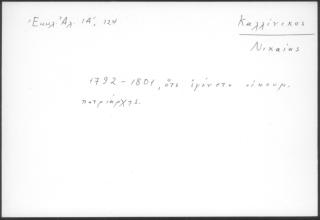 Ἐκκλ. Ἀλ. ΙΑ', 124
Καλλίνικος
Νικαίας
1792 - 1801, ὅτε ἐγένετο οἰκουμ.
πατριάρχης.